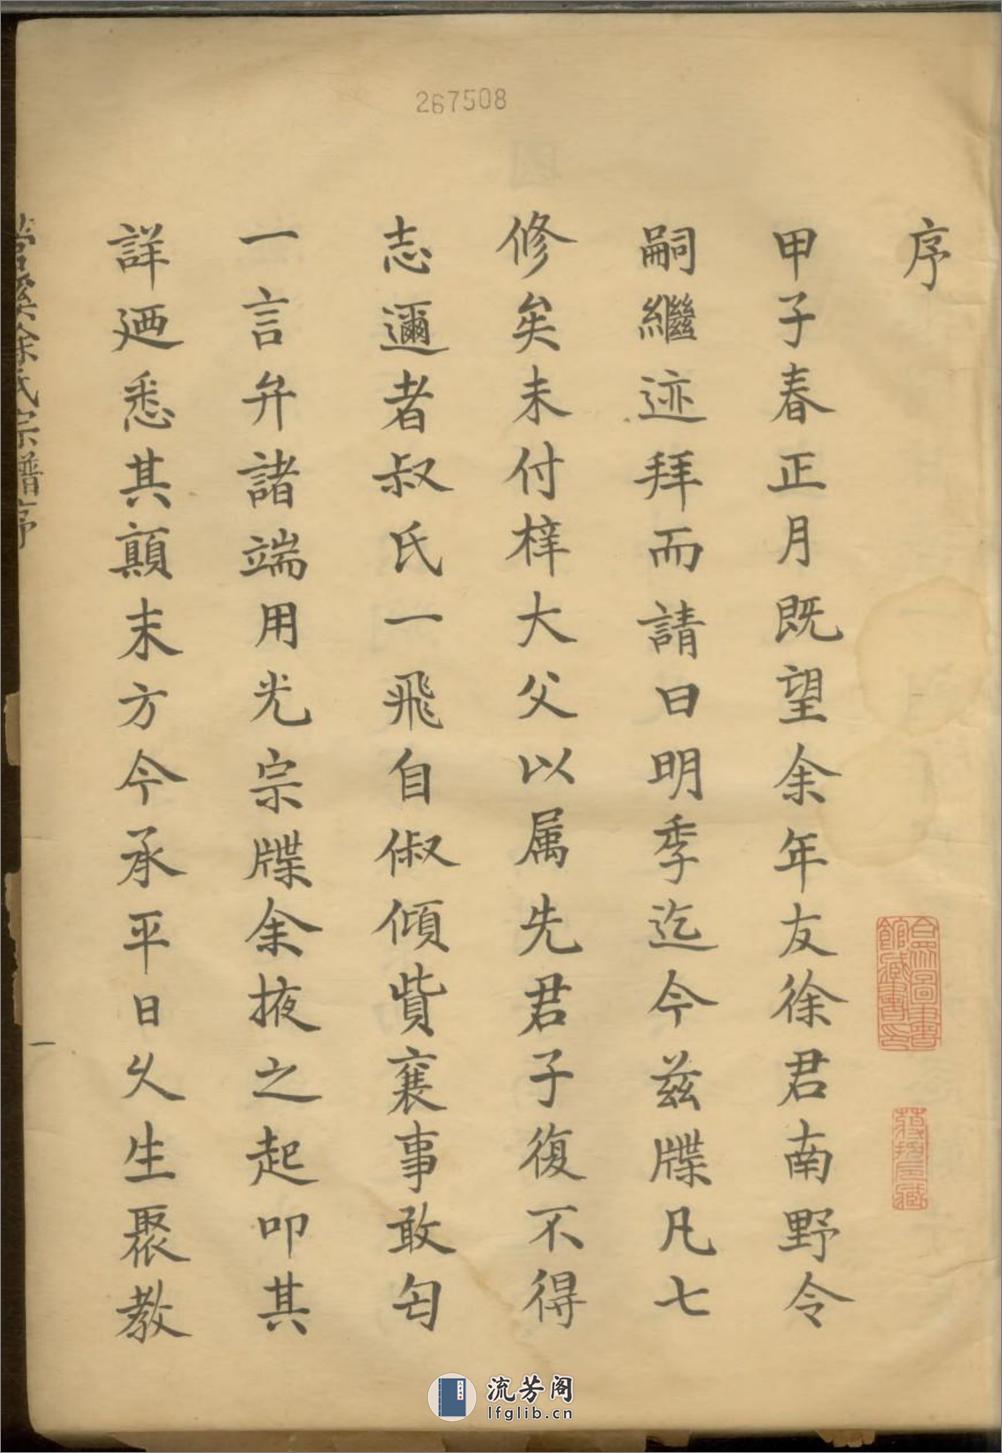 267508
序
甲子春正月既望余年友徐君南野令
嗣繼迹拜而請曰明季迄今茲牒凡七
修矣未付梓大父以属先君子復不得
志邇者叔氏一飛自俶傾貲襄事敢匄
一言弁諸端用光宗牒余掖之起叩其
詳廼悉其顛末方今承平日久生聚教
溪徐氏宗譜序
一
流芳阁
lfglib.cn